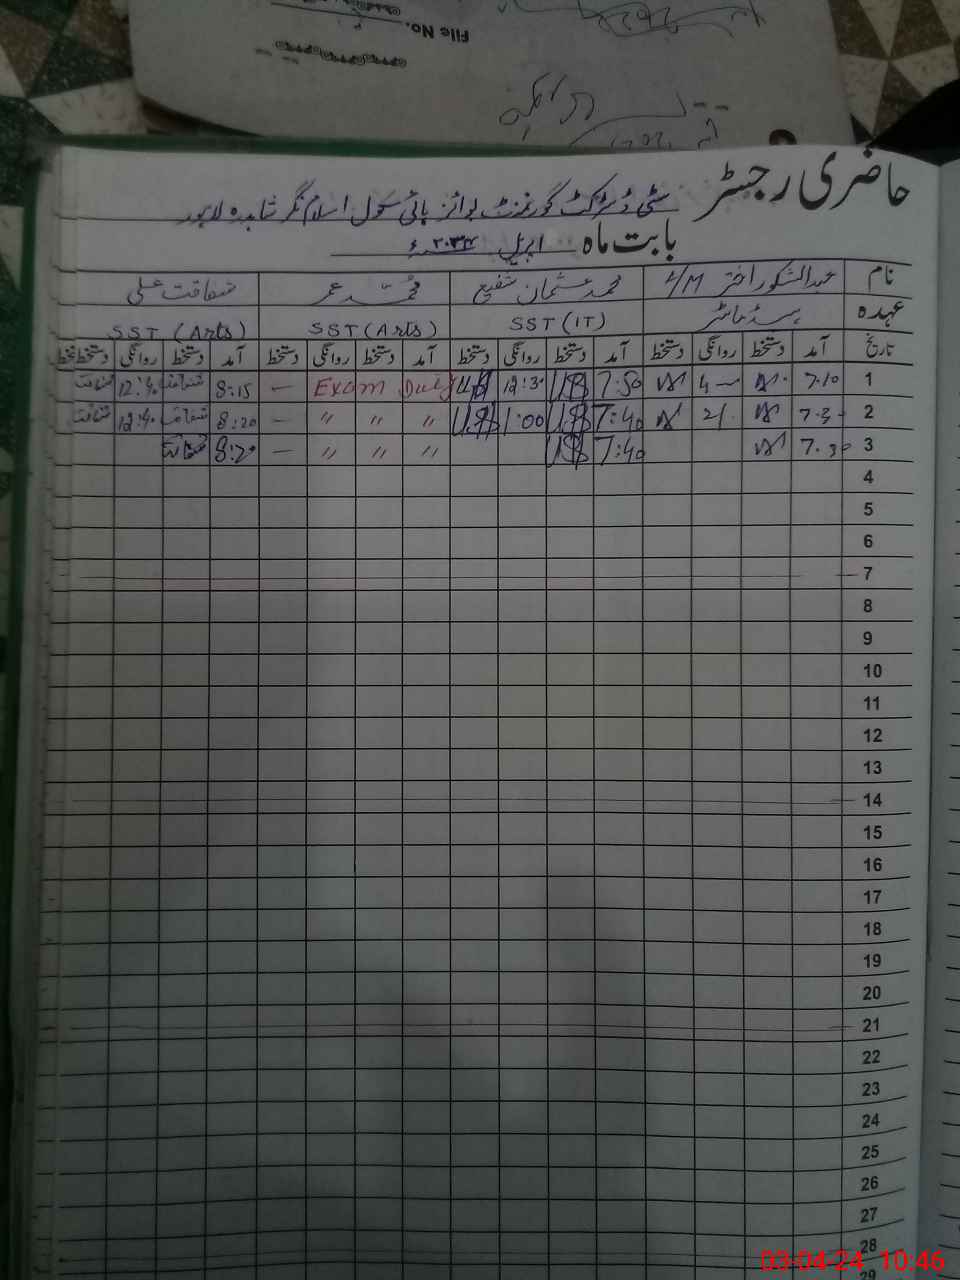 File No.
حاضری رجسٹر
سٹی ڈسٹرکٹ گورنمنٹ بوائز ہائی سکول اسلام نگر شاہدرہ لاہور
بابت ماہ اپریل ۲۰۲۴ء
نام عبدالشکور اختر H/M محمد عثمان شفیع محمد عمر شفاقت علی
عہدہ ہیڈ ماسٹر SST (IT) SST (Arts) SST (Arts)
تاریخ آمد دستخط روانگی دستخط آمد دستخط روانگی دستخط آمد دستخط روانگی دستخط آمد دستخط روانگی دستخط
1 7.10 4 — 7:50 12:30 Exam Duty — 8:15 شفاقت 12:40 شفاقت
2 7.30 2/. 7:40 1:00 〃 〃 〃 — 8:20 شفاقت 12:40 شفاقت
3 7.30 7:40 〃 〃 〃 — 8:20 شفاقت
4
5
6
7
8
9
10
11
12
13
14
15
16
17
18
19
20
21
22
23
24
25
26
27
28
29
03-04-24 10:46